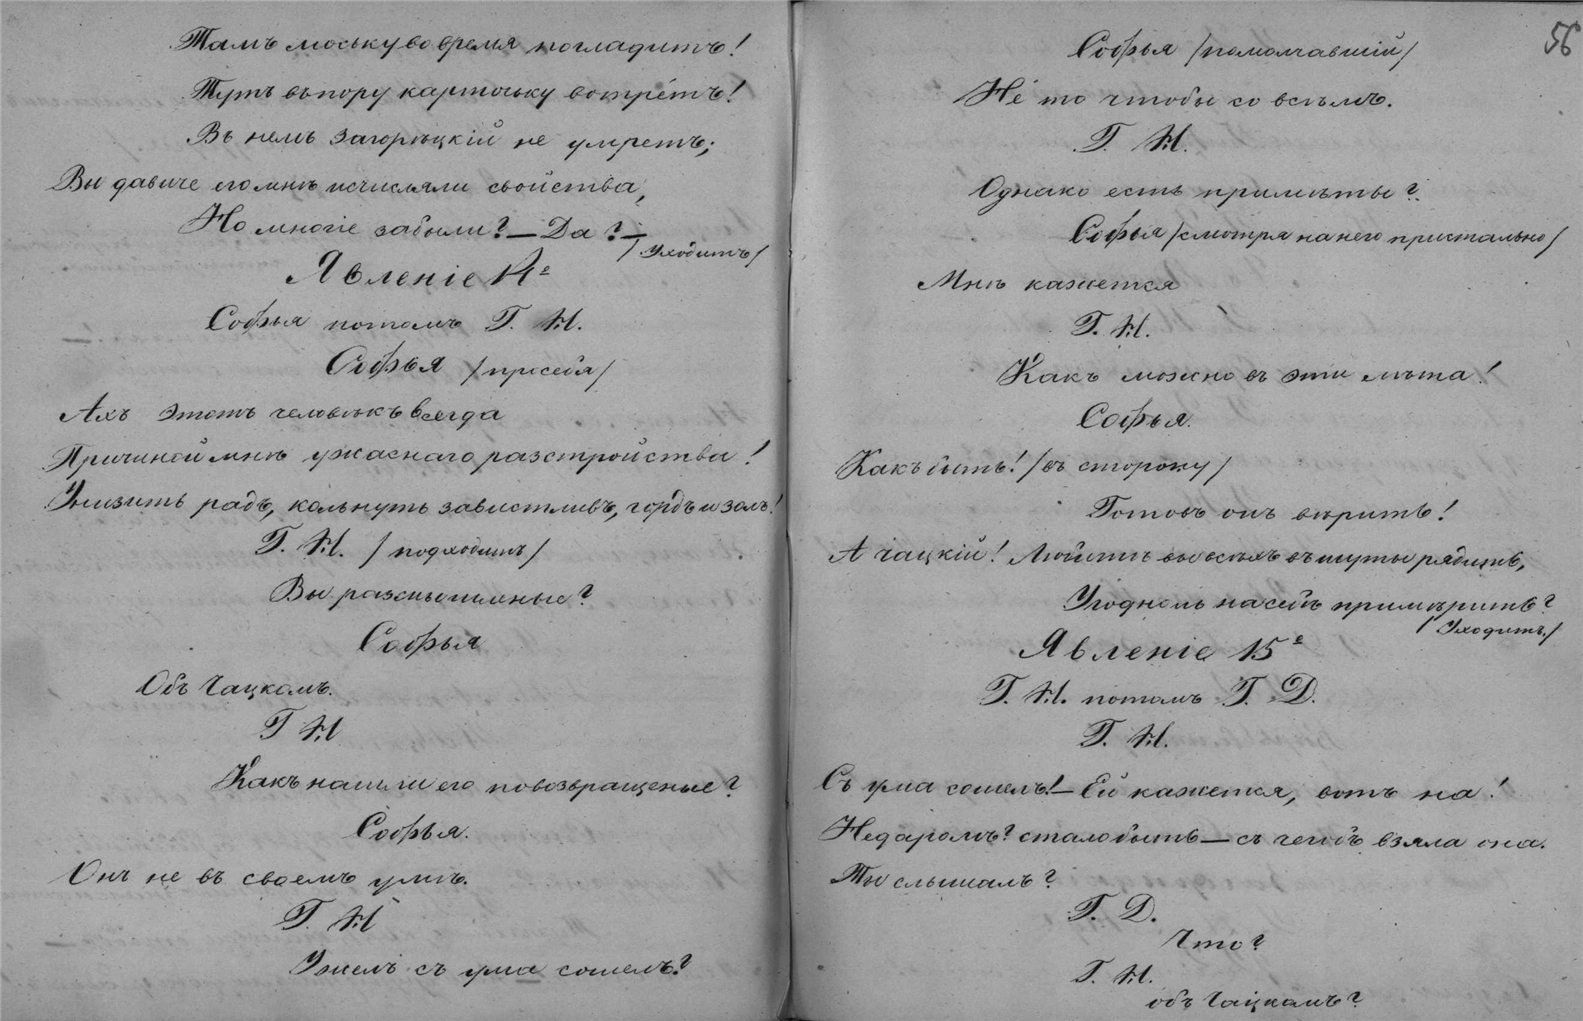 Тамъ моську во время погладитъ!
Тутъ въ пору карточьку вотрётъ!
Въ немъ Загорѣцкій не умретъ;
Вы давиче его мнѣ исчисляли свойства,
Но многіе забыли? — Да? —
/ Уходитъ /
Явленіе 14е
Софья потомъ Г. N.
Софья /про себя/
Ахъ этотъ человѣкъ всегда
Причиной мнѣ ужаснаго разстройства!
Унизить радъ, кольнуть завистливъ, гордъ и золъ!
Г. N. / подходитъ /
Вы размышленье?
Софья
Объ Чацкомъ.
Г N
Какъ нашли его по возвращенье?
Софья.
Онъ не въ своемъ умѣ.
Г. N
Ужель съ ума сошелъ?
56
Софья /помолчавшій/
Не то чтобы со всѣмъ.
Г. N.
Однако есть примѣты?
Софья /смотря на него пристально/
Мнѣ кажется
Г. N.
Какъ можно въ эти лѣта!
Софья.
Какъ быть! /въ сторону/
Готовъ онъ вѣрить!
А Чацкій! Любите вы всѣхъ въ шуты рядить,
Угодноль на себѣ примѣрить?
/ Уходитъ /
Явленіе 15е
Г. N. потомъ Г. D.
Г. N.
Съ ума сошелъ! — Ей кажется, вотъ на!
Недаромъ? стало быть — съ чегобъ взяла она.
Ты слышалъ?
Г. D.
Что?
Г. N.
объ Чацкомъ?